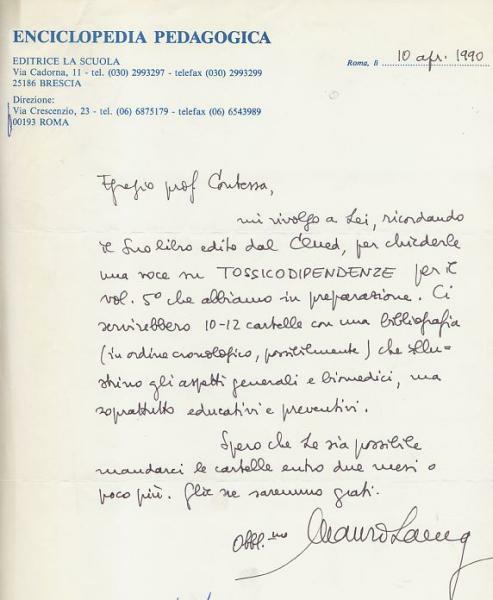 ENCICLOPEDIA PEDAGOGICA
EDITRICE LA SCUOLA
Via Cadorna, 11 - tel. (030) 2993297 - telefax (030) 2993299
25186 BRESCIA
Roma, li 10 apr. 1990
Direzione:
Via Crescenzio, 23 - tel. (06) 6875179 - telefax (06) 6543989
00193 ROMA
Egregio prof Contessa,
mi rivolgo a Lei, ricordando
il Suo libro edito dal Clued, per chiederle
una voce su TOSSICODIPENDENZE per il
vol. 5º che abbiamo in preparazione. Ci
servirebbero 10-12 cartelle con una bibliografia
(in ordine cronologico, possibilmente) che illu-
strino gli aspetti generali e biomedici, ma
soprattutto educativi e preventivi.
Spero che Le sia possibile
mandarci le cartelle entro due mesi o
poco più. Gliene saremmo grati.
Obbl.mo Mauro Laeng